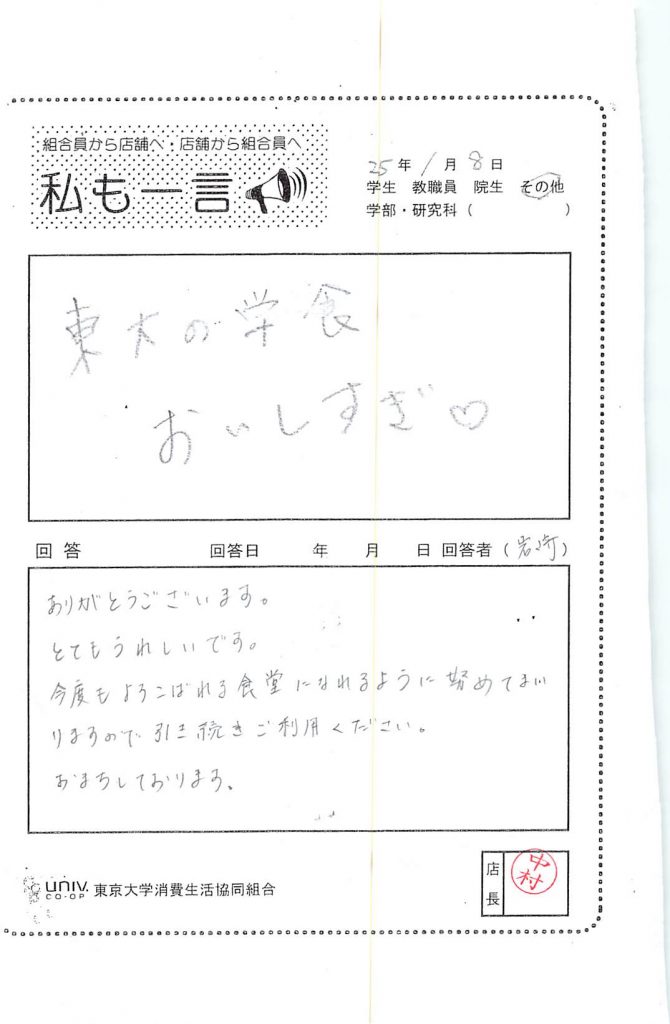 組合員から店舗へ・店舗から組合員へ
私も一言
25年1月8日
学生 教職員 院生 その他
学部・研究科( )
東大の学食
おいしすぎ♡
回答 回答日 年 月 日 回答者(岩崎)
ありがとうございます。
とてもうれしいです。
今度もよろこばれる食堂になれるように努めてまい
りますので引き続きご利用ください。
おまちしております。
univ. CO-OP 東京大学消費生活協同組合
店長
中村